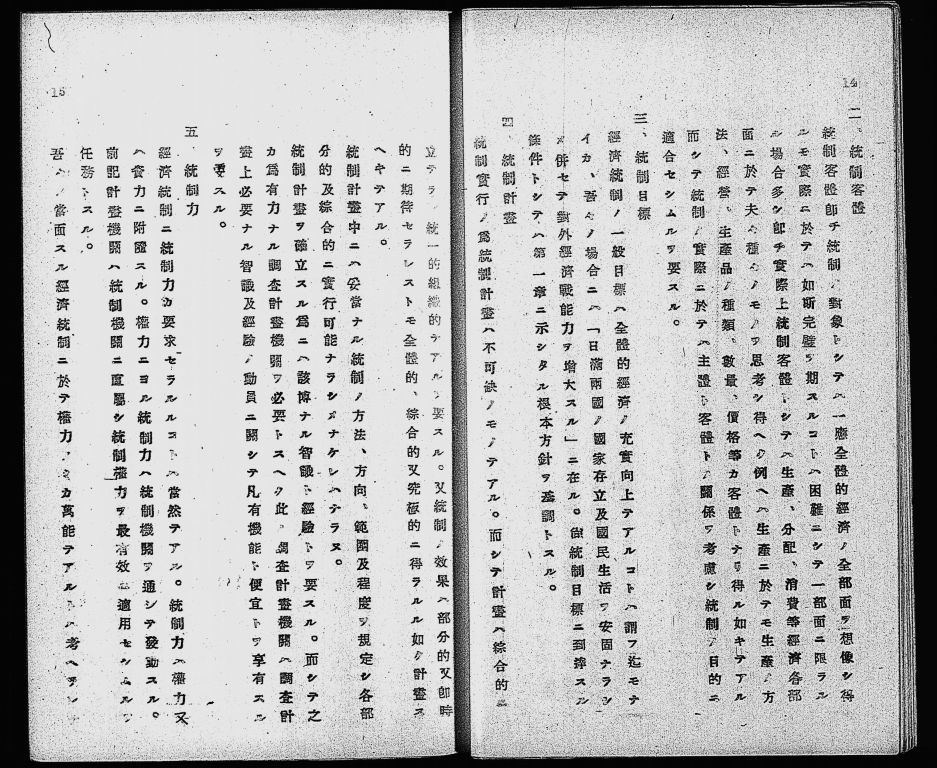 14
二、統制客體
統制客體即チ統制ノ對象トシテハ一應全體的經濟ノ全部面ヲ想像シ得
ルモ實際ニ於テハ如斯完璧ヲ期スルコトハ困難ニシテ一部面ニ限ラル
ル場合多シ即チ實際上統制客體トシテハ生產、分配、消費等經濟各部
面ニ於テ夫々種々ノモノヲ思考シ得ヘク例ヘハ生產ニ於テモ生產ノ方
法、經營、生產品ノ種類、數量、價格等カ客體トナリ得ル如キテアル
而シテ統制ノ實際ニ於テハ主體ト客體トノ關係ヲ考慮シ統制ノ目的ニ
適合セシムルヲ要スル。
三、統制目標
經濟統制ノ一般目標ハ全體的經濟ノ充實向上テアルコトハ謂フ迄モナ
イカ、吾々ノ場合ニハ「日滿兩國ノ國家存立及國民生活ヲ安固ナラシ
メ併セテ對外經濟戰能力ヲ增大スル」ニ在ル。尙統制目標ニ到達スル
條件トシテハ第一章ニ示シタル根本方針ヲ基調トスル。
四、統制計畫
統制實行ノ爲統制計畫ハ不可缺ノモノテアル。而シテ計畫ハ綜合的ニ
15
立テラレ統一的組織的テアルヲ要スル。又統制ノ效果ハ部分的又卽時
的ニ期待セラレストモ全體的、綜合的又究極的ニ得ラルル如ク計畫ス
ヘキテアル。
統制計畫中ニハ妥當ナル統制ノ方法、方向、範圍及程度ヲ規定シ各部
分的及綜合的ニ實行可能ナラシメナケレハナラヌ。
統制計畫ヲ確立スル爲ニハ該博ナル智識ト經驗トヲ要スル。而シテ之
カ爲有力ナル調査計畫機關ヲ必要トスヘク此ノ調査計畫機關ハ調査計
畫上必要ナル智識及經驗ノ動員ニ關シテ凡有機能ト便宜トヲ享有スル
ヲ要スル。
五、統制力
經濟統制ニ統制力カ要求セラルルコトハ當然テアル。統制力ハ權力又
ハ實力ニ附隨スル。權力ニヨル統制力ハ統制機關ヲ通シテ發動スル。
前記計畫機關ハ統制機關ニ直屬シ統制權力ヲ最有效ニ適用セシムルヲ
任務トスル。
吾々ノ當面スル經濟統制ニ於テ權力ノミカ萬能テアルトハ考ヘラレ